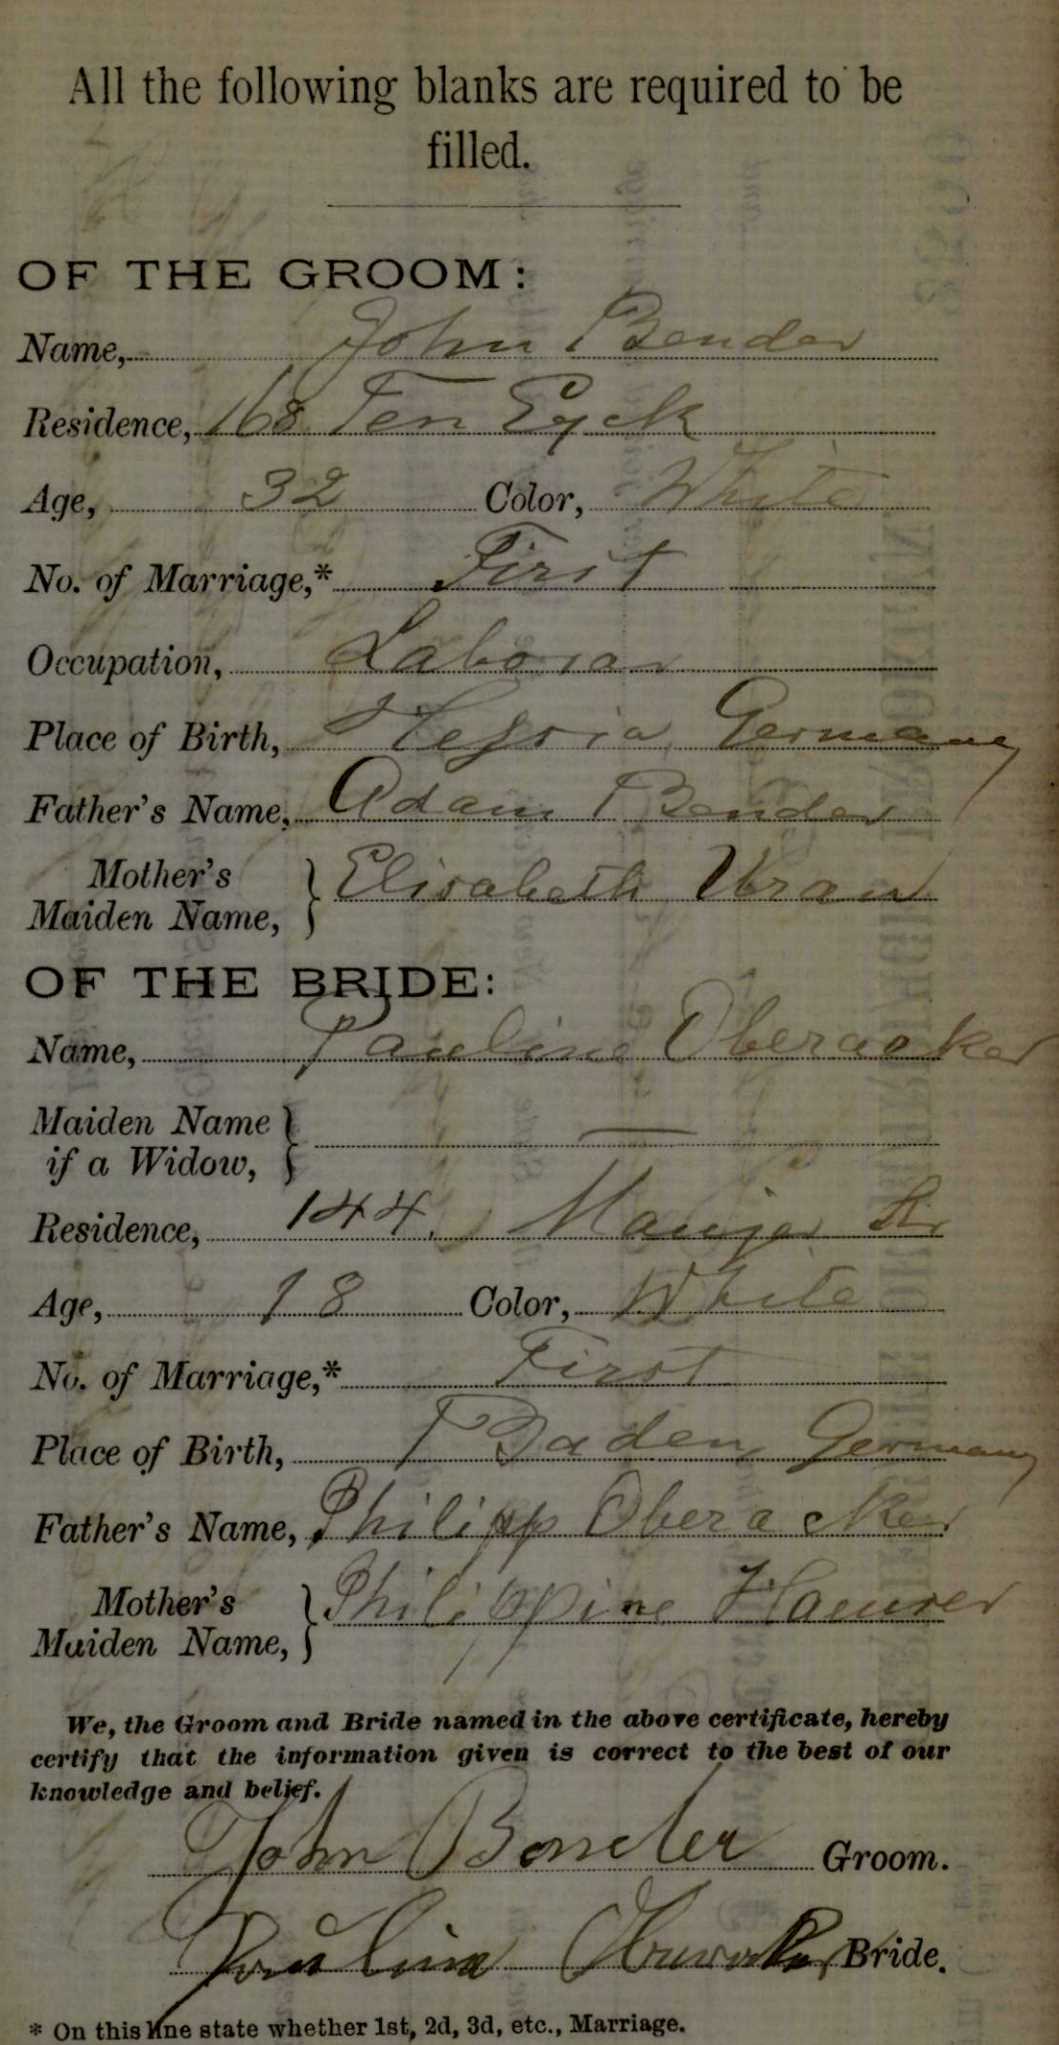 All the following blanks are required to be
filled.
OF THE GROOM:
Name, John Bender
Residence, 168 Ten Eyck
Age, 32 Color, White
No. of Marriage,* First
Occupation, Laborar
Place of Birth, Hessia, Germany
Father's Name, Adam Bender
Mother's
Maiden Name, Elisabeth
OF THE BRIDE:
Name, Pauline Oberacker
Maiden Name
if a Widow, —
Residence, 144. Maujer Str
Age, 18 Color, White
No. of Marriage,* First
Place of Birth, Baden, Germany
Father's Name, Philipp Oberacker
Mother's
Maiden Name, Philippine
We, the Groom and Bride named in the above certificate, hereby
certify that the information given is correct to the best of our
knowledge and belief.
John Bender Groom.
Paulina Bride.
* On this line state whether 1st, 2d, 3d, etc., Marriage.